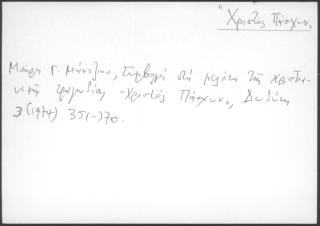 "Χριστὸς Πάσχων
Μαίρη Γ. Μάντζιου, Συμβολὴ στὴ μελέτη τῆς χριστια-
νικῆς τραγωδίας "Χριστὸς Πάσχων", Δωδώνη
3 (1974) 351-370.